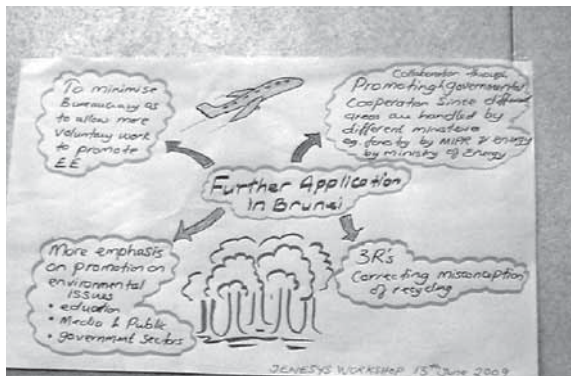 To minimise
Bureaucracy as
to allow more
voluntary work
to promote
EE
Collaboration through
Promoting governmental
Cooperation since different
areas are handled by
different ministries
eg. forestry by MIPR & energy
by ministry of Energy
Further Application
in Brunei
More emphasis
on promotion on
environmental
issues
• education
• Media & Public
• government sectors
3R's
Correcting misconception
of recycling
JENESYS WORKSHOP 13th June 2009